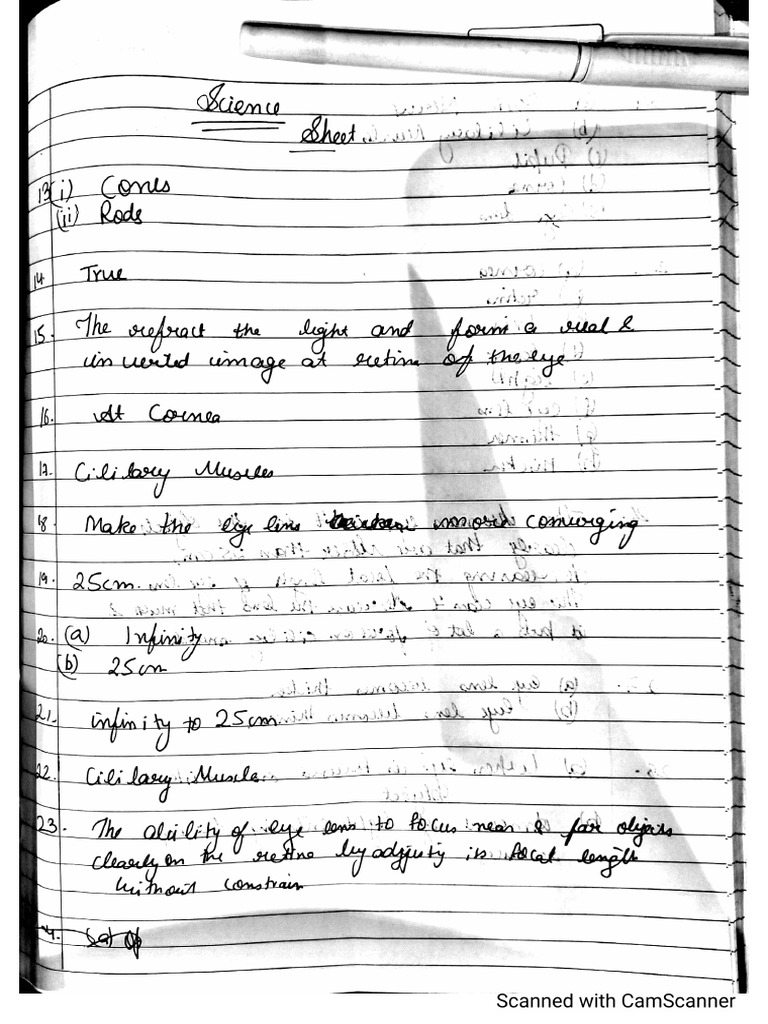 Science
Sheet
13(i) Cones
(ii) Rods
14 True
15. The refract the light and form a real &
inverted image at retina of the eye
16. At Cornea
17. Cililary Muscles
18. Make the eye lens more converging
19. 25cm.
20. (a) Infinity
(b) 25cm
21. infinity to 25cm
22. Cililary Muscle
23. The ability of eye lens to focus near & far objects
clearly on the retina by adjusty its focal length
without constrain
Scanned with CamScanner